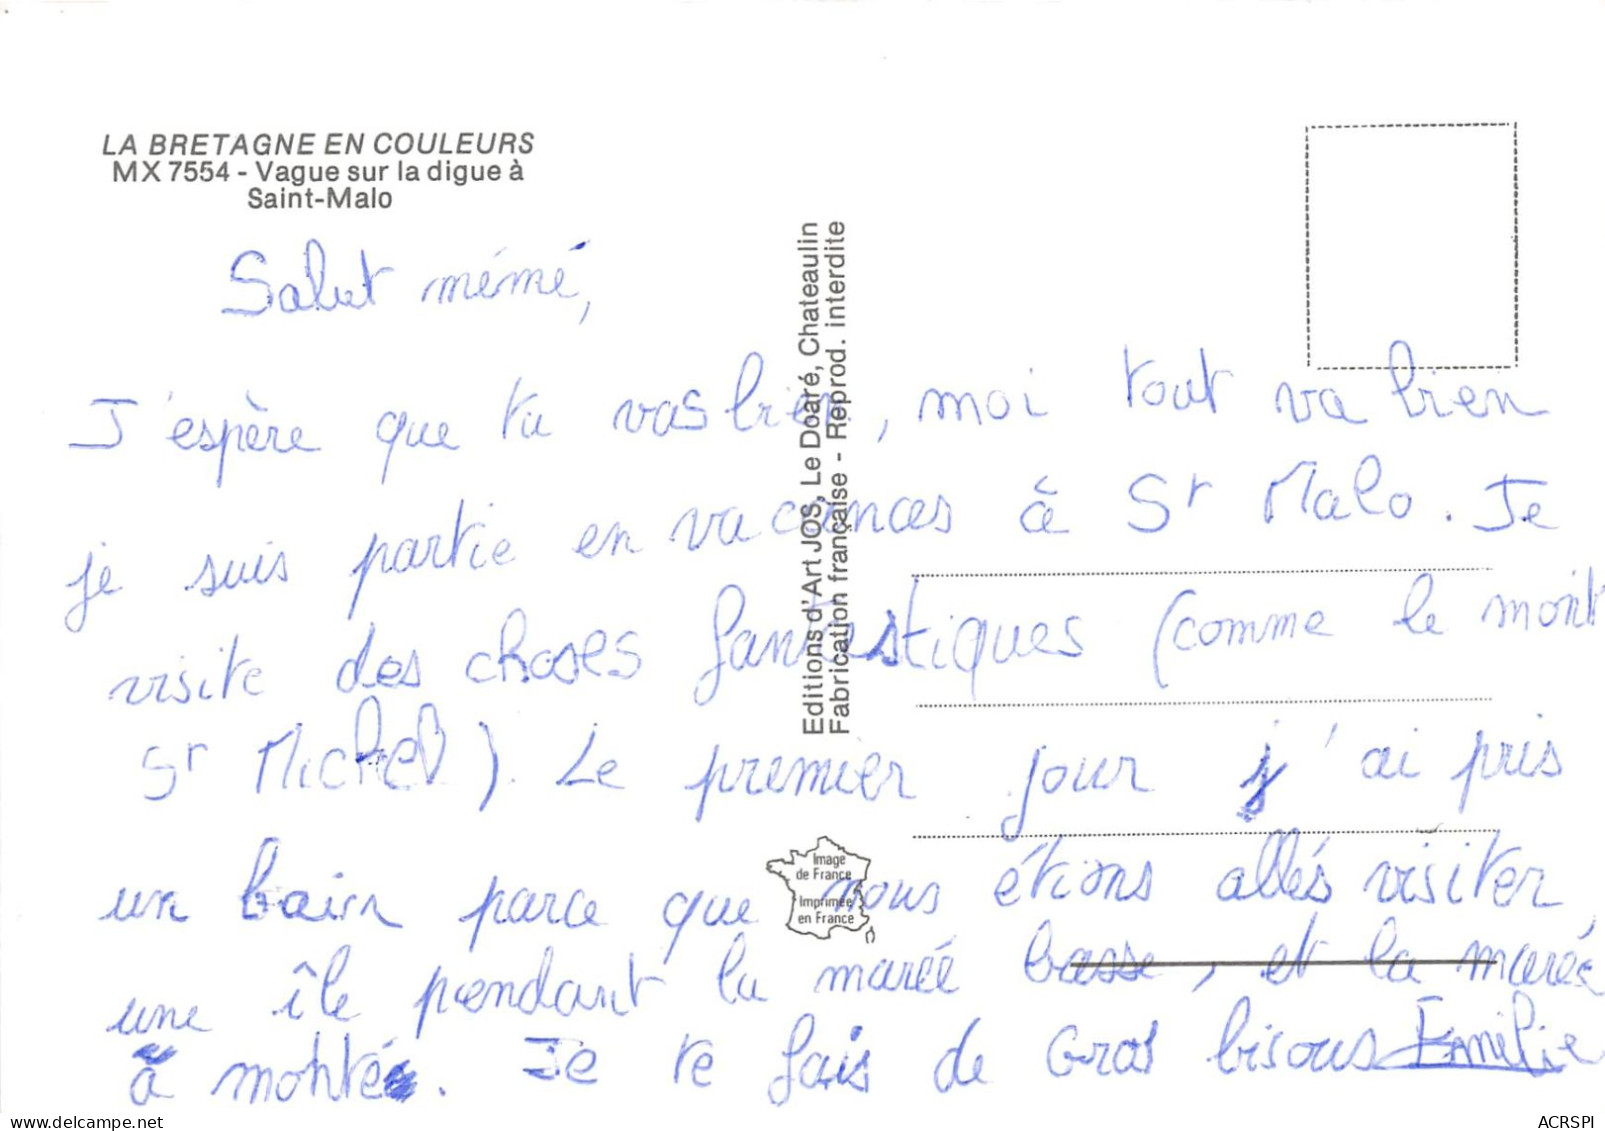 LA BRETAGNE EN COULEURS
MX 7554 - Vague sur la digue à
Saint-Malo
Editions d'Art JOS, Le Doaré, Chateaulin
Fabrication française - Reprod. interdite
Salut mémé,
J'espère que tu vas bien, moi tout va bien
je suis partie en vacances à St Malo. Je
visite des choses fantastiques (comme le mont
St Michel). Le premier jour j'ai pris
un bain parce que nous étions allés visiter
une île pendant la maréé basse, et la marée
à monté. Je te fais de Gros bisous Emilie
Image
de France
Imprimée
en France
ACRSPI